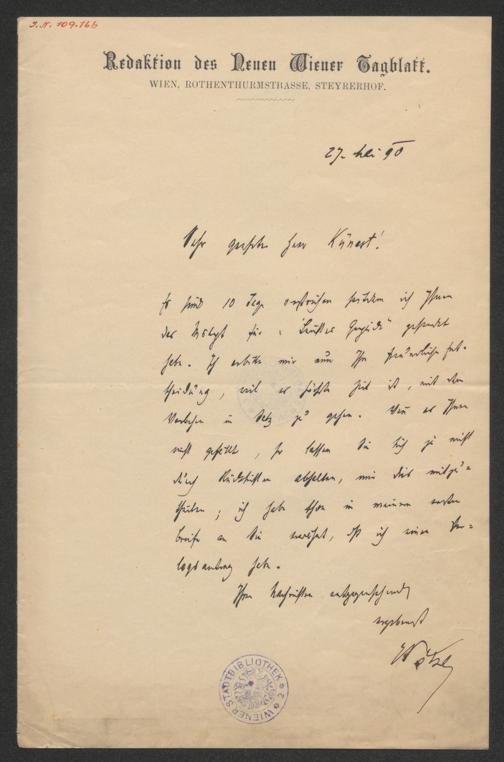 J.N. 109.166
Redaktion des Neuen Wiener Tagblatt.
WIEN, ROTHENTHURMSTRASSE, STEYRERHOF.
27. Mai 90
Sehr geehrter Herr Künast!
Es sind 10 Tage verstrichen seitdem ich Ihnen
das Mskpt für "Buntes Gesindel" gesendet
habe. Ich erbitte mir nun Ihre freundliche Ent-
scheidung, weil es höchste Zeit ist, mit dem
zu gehen. Wenn es Ihnen
nicht gefällt, so lassen Sie sich ja nicht
durch Rücksichten abhalten, mir dies mitzu-
theilen; ich habe schon in meinem ersten
Briefe an Sie erwähnt, dß ich einen Ver-
lagsantrag habe.
Ihren Nachrichten entgegensehend
ergebenst
WIENER STADTBIBLIOTHEK